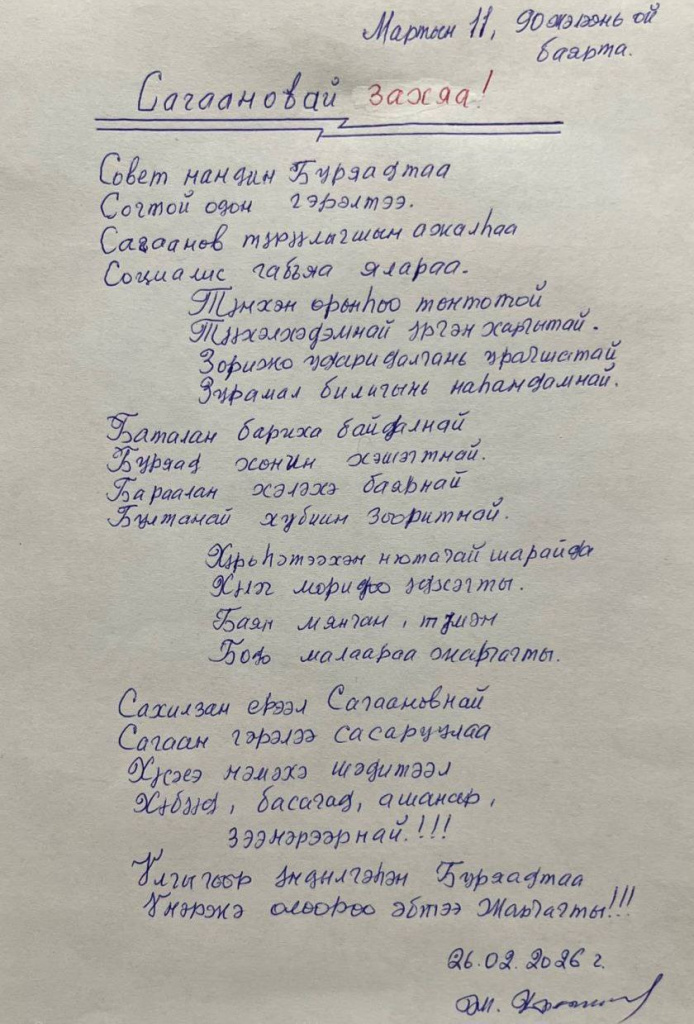 Мартын 11, 90 жэлэнь ой
баярта.
Сагаановай захяа!
Совет нандин Буряадтаа
Согтой одон гэрэлтээ.
Сагаанов түрүүлэгшын ажалһаа
Социалис габъяа ялараа.
Түнхэн оронһоо тонтотой
Түүхэлхэдэмнай үргэн харгытай.
Зорижо ударидалгань урагшатай
Зурамал билигынь наһандамнай.
Баталан бариха байдалнай
Буряад хонин хэшэгтнай.
Бараалан хэлэхэ баярнай
Бултанай хубиин зөөритнай.
Хүрьһэтээхэн нютагай шарайда
Хүлэг моридоо үдхэгты.
Баян мянган, түмэн
Бодо малаараа жаргагты.
Сахилзан ерээл Сагаановнай
Сагаан гэрэлээ сасаруулаа
Хүсэ нэмэхэ шэдитээл
Хүбүүд, басагад, ашанар,
зээнэрээрнай.!!!
Үлгы гоор үндылгэһэн Буряадтаа
Үнэржэ олоороо эбтээ Жаргагты!!!
26.02.2026 г.